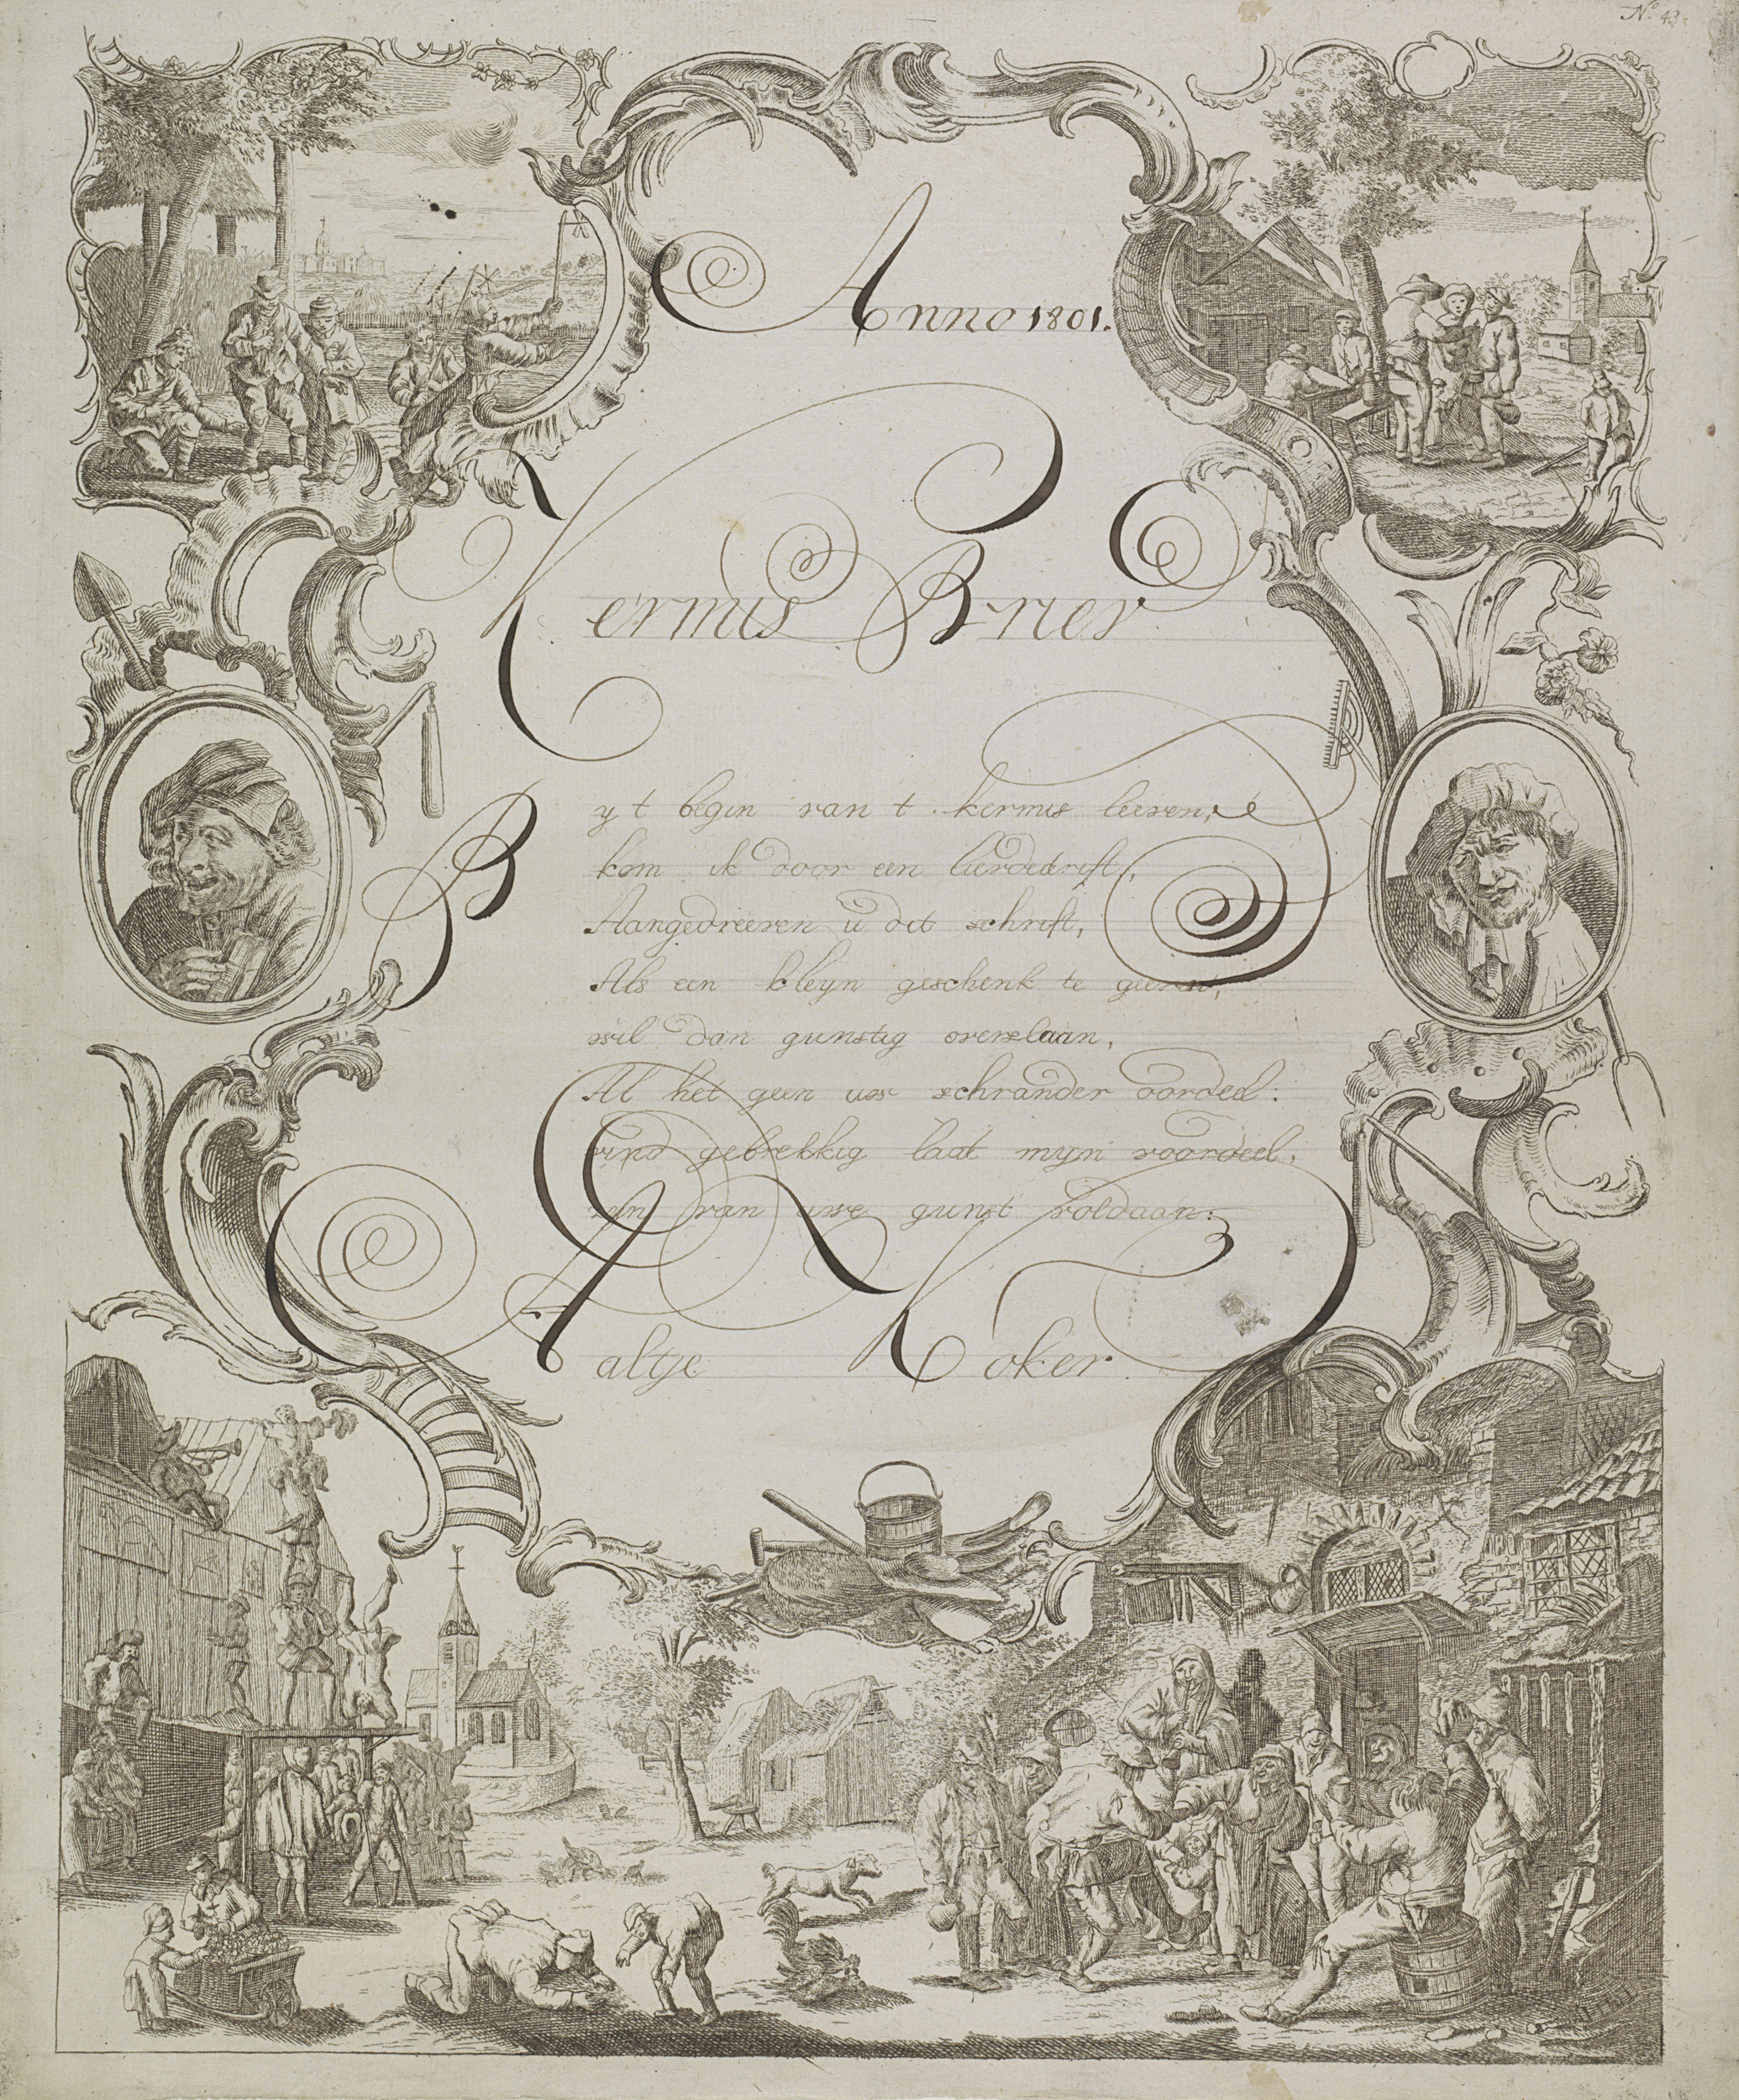 No. 43.
Anno 1801.
Kermis Brief
By t begin van t kermis leeven,
kom ik door een lierdedrift,
Aangedreeven u dit schrift,
Als een kleyn geschenk te geeven,
wil dan gunstig overslaan,
Al het geen uw schrander oordeel:
vind gebrekkig laat myn voordeel,
zyn van uwe gunst voldaan:
Aaltje Koker.